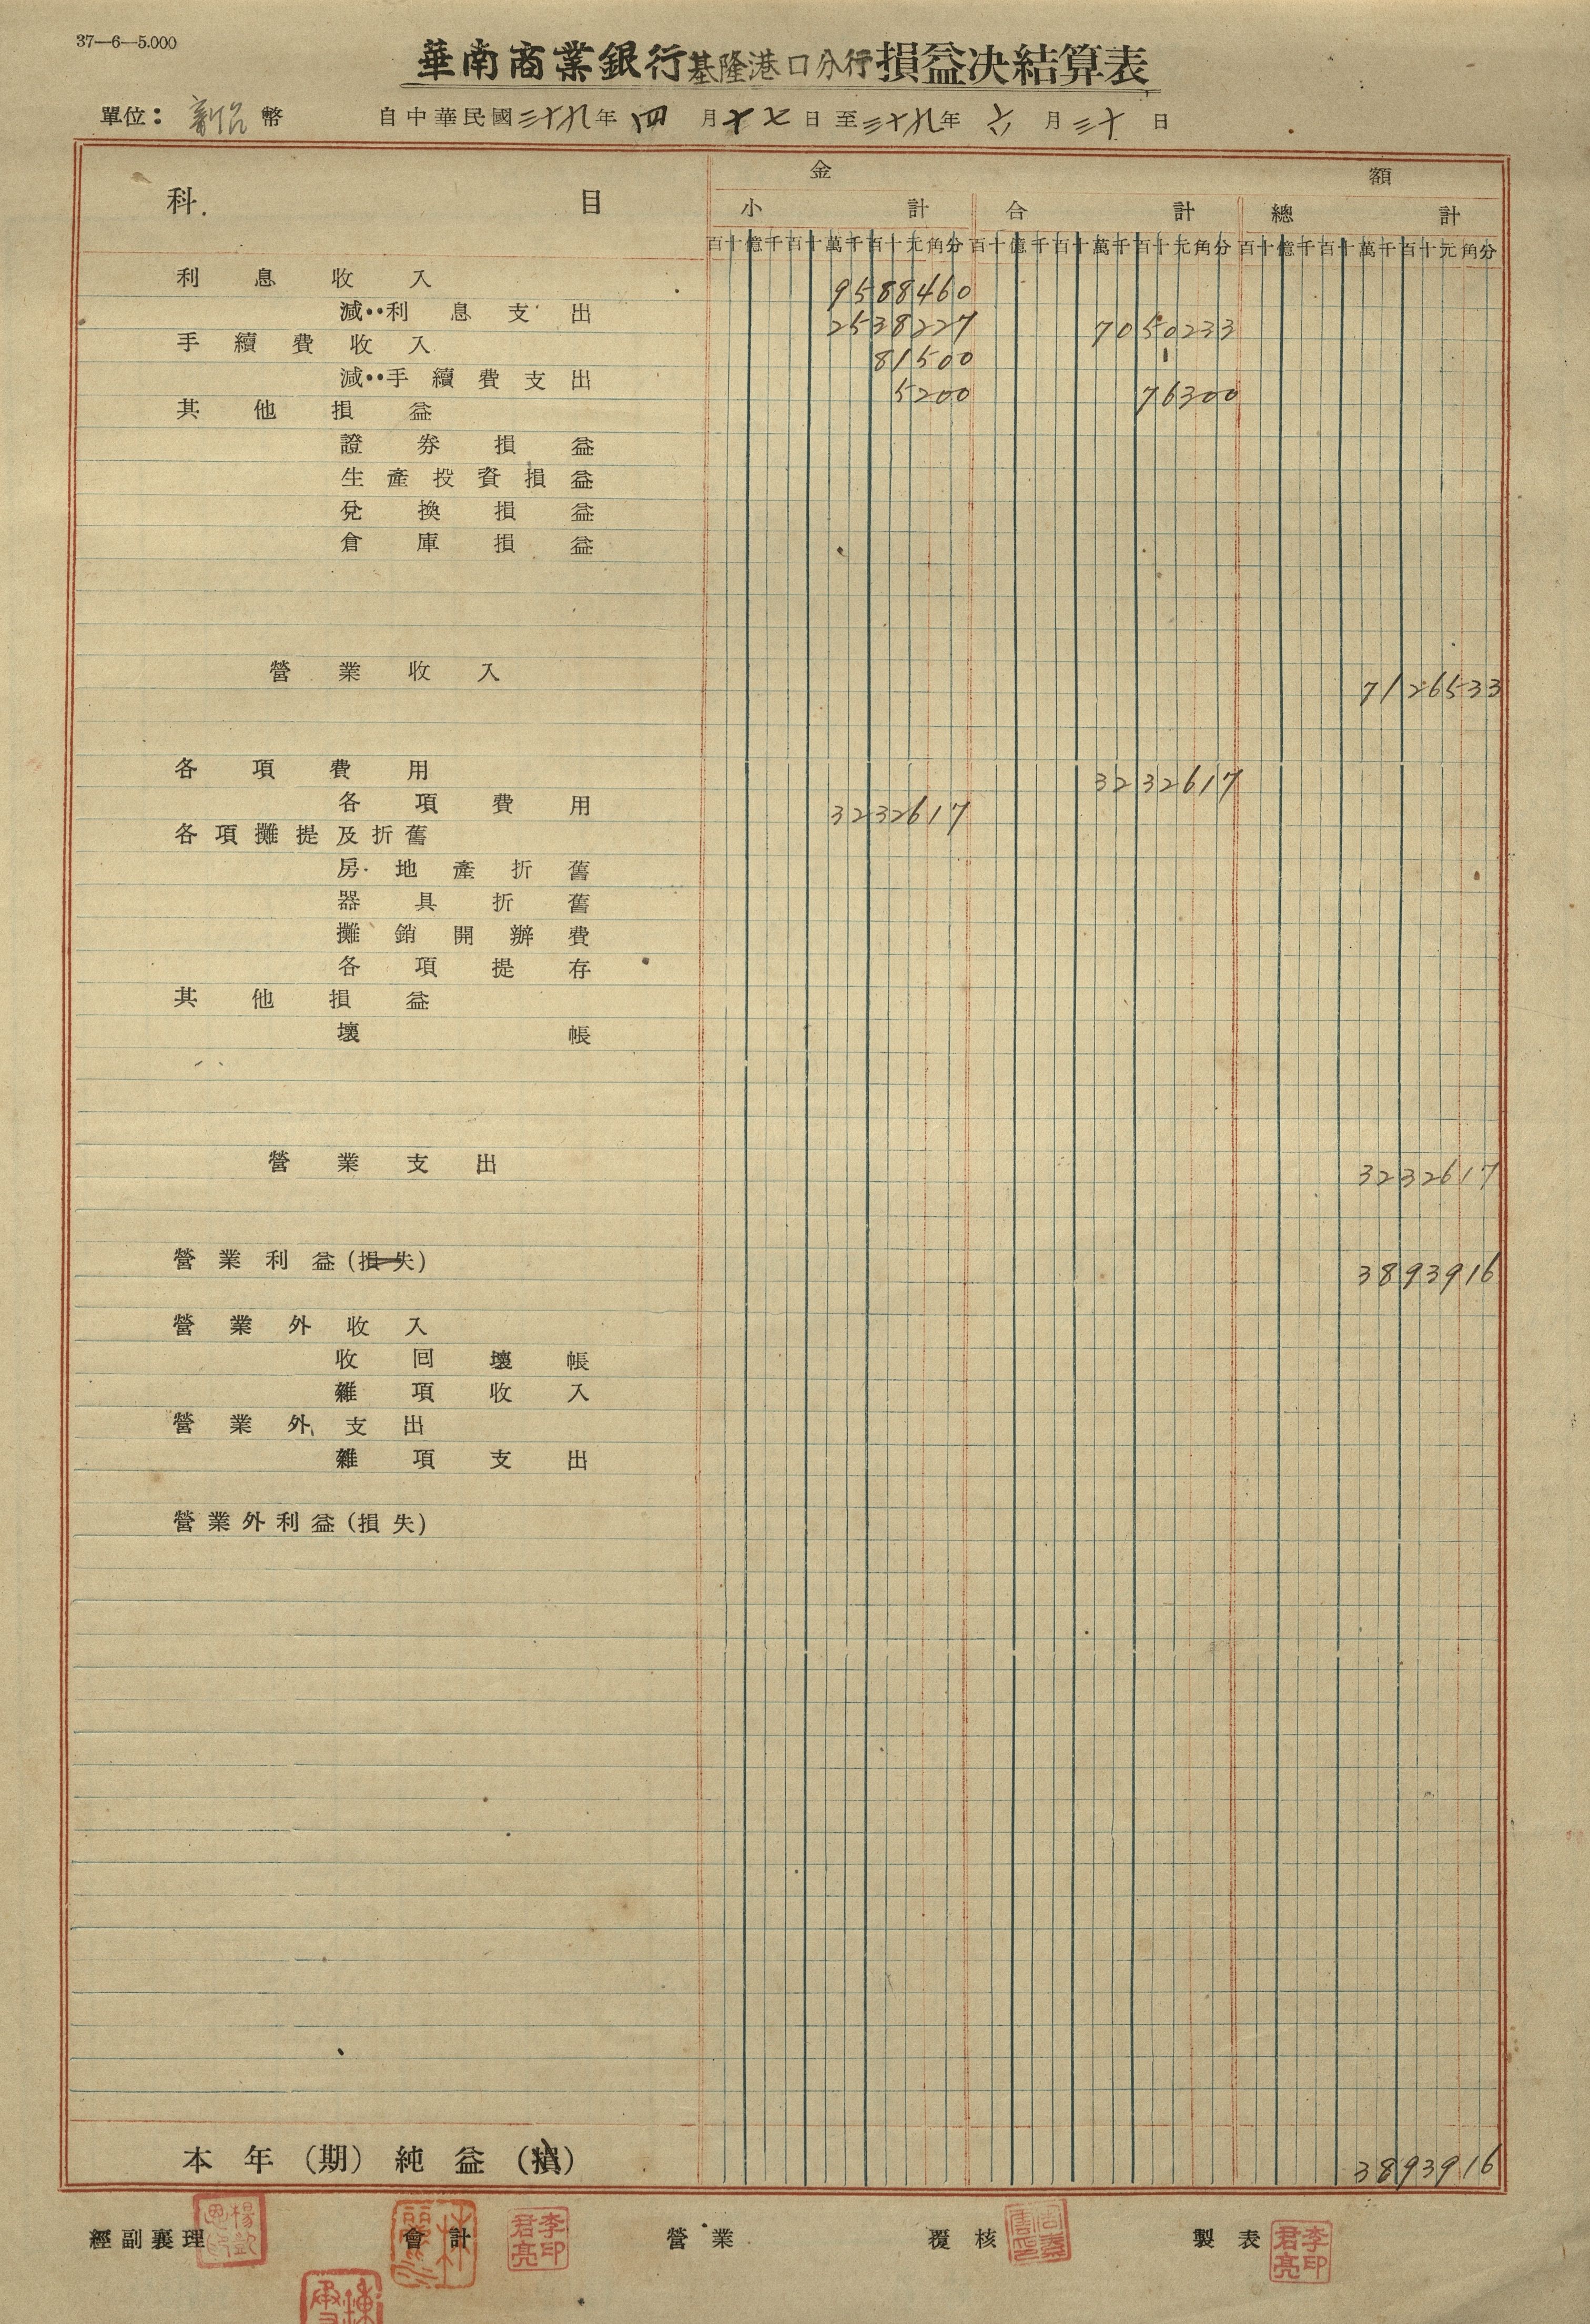 37—6—5.000
華南商業銀行基隆港口分行損益決結算表
單位：新台幣 自中華民國三十九年四月十七日至三十九年六月三十日
科目 金額
小計 合計 總計
百十億千百十萬千百十元角分 百十億千百十萬千百十元角分 百十億千百十萬千百十元角分
利息收入 9588460
減··利息支出 2538227 7050233
手續費收入 81500
減··手續費支出 5200 76300
其他損益
證券損益
生產投資損益
兌換損益
倉庫損益
營業收入 7126533
各項費用 3232617
各項費用 3232617
各項攤提及折舊
房地產折舊
器具折舊
攤銷開辦費
各項提存
其他損益
壞帳
營業支出 3232617
營業利益(損失) 3893916
營業外收入
收回壞帳
雜項收入
營業外支出
雜項支出
營業外利益(損失)
本年(期)純益(損) 3893916
經副襄理 會計 李君亮印 營業 覆核 製表 李君亮印